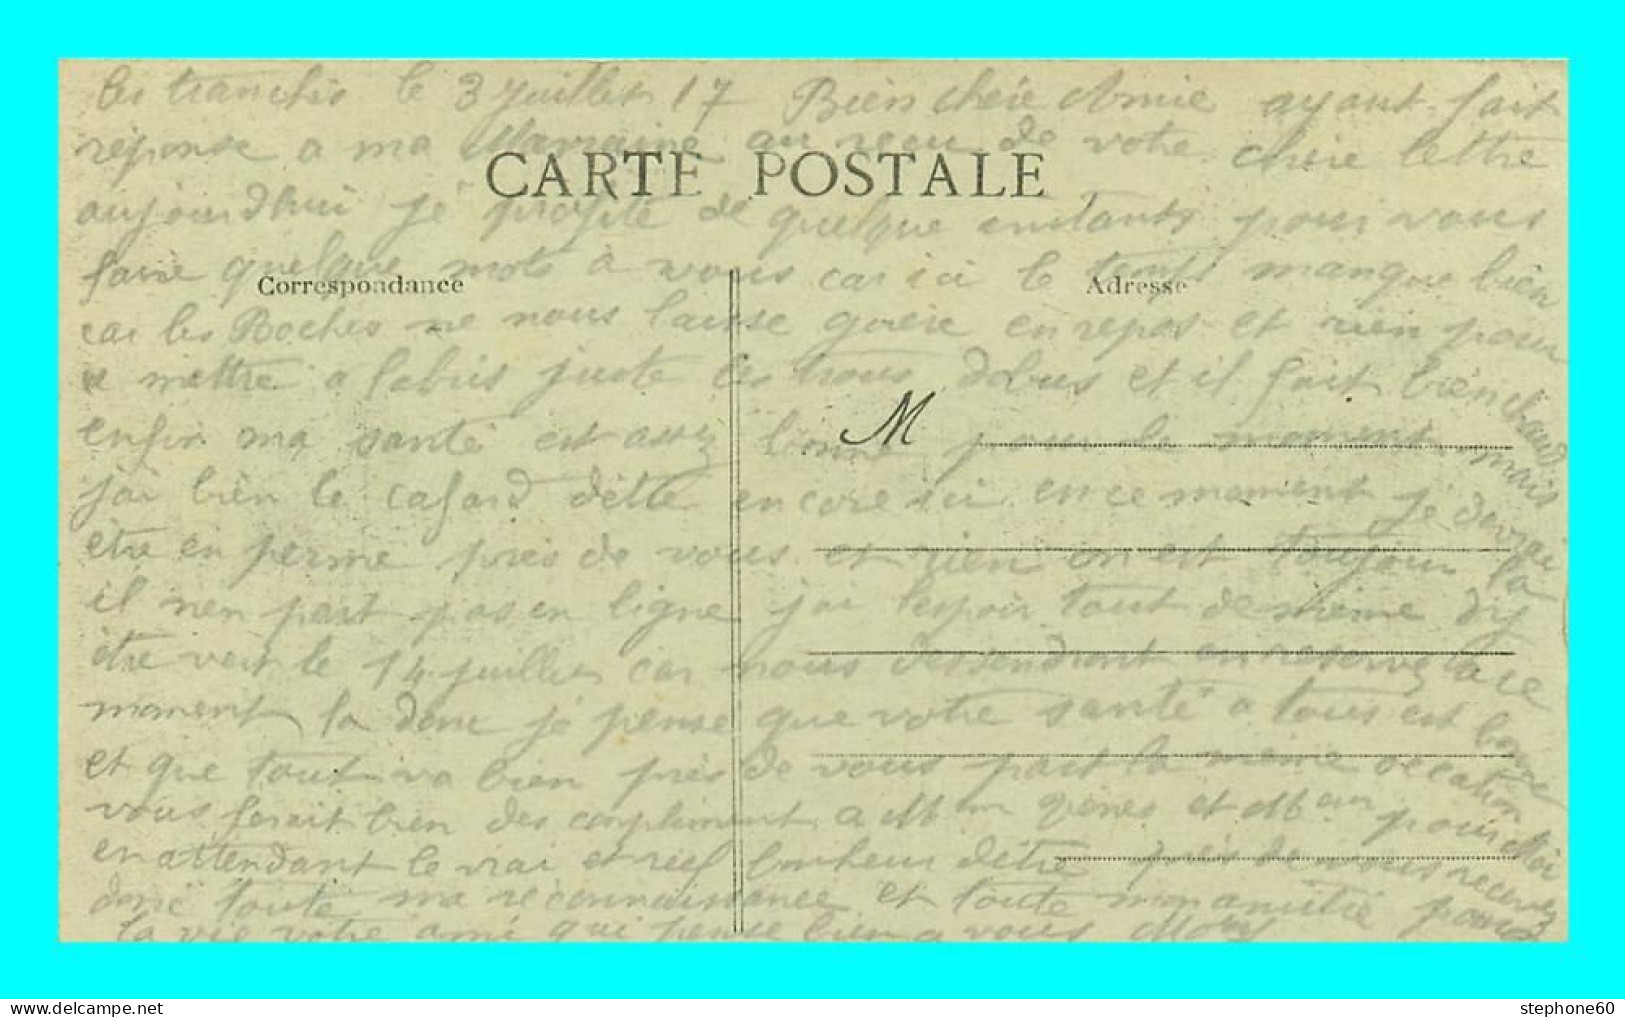 les tranchés le 3 juillet 17 Bien chére Amie ayant fait
réponse a ma Marraine au recu de votre chére lettre
CARTE POSTALE
aujourdhui je profite de quelque instants pour vous
faire quelque mots a vous car ici le temps manque bien
Correspondance
Adresse
car les Boches ne nous laisse guére en repos et rien pour
se mettre a labris juste les trous dobus et il fait bien chaud
M
enfin ma santé est assez bonne pour le moment mais
jai bien le cafard détre encore ici en ce moment je devrai
etre en perme prés de vous et rien on est toujour la
il nen part pas en ligne jai lespoir tout de méme dy
étre vert le 14 juillet car nous dessendront en reserve a ce
moment la donc je pense que votre santé a tous est bonne
et que tout va bien prés de vous part la méme occation
vous ferait bien des compliment a et pour Moi
en attendant le vrai et reel bonheur détre prés de vous recevez
donc toute ma reconnaissance et toute mon amitié pour
la vie votre ami qui pense bien a vous
stephone60